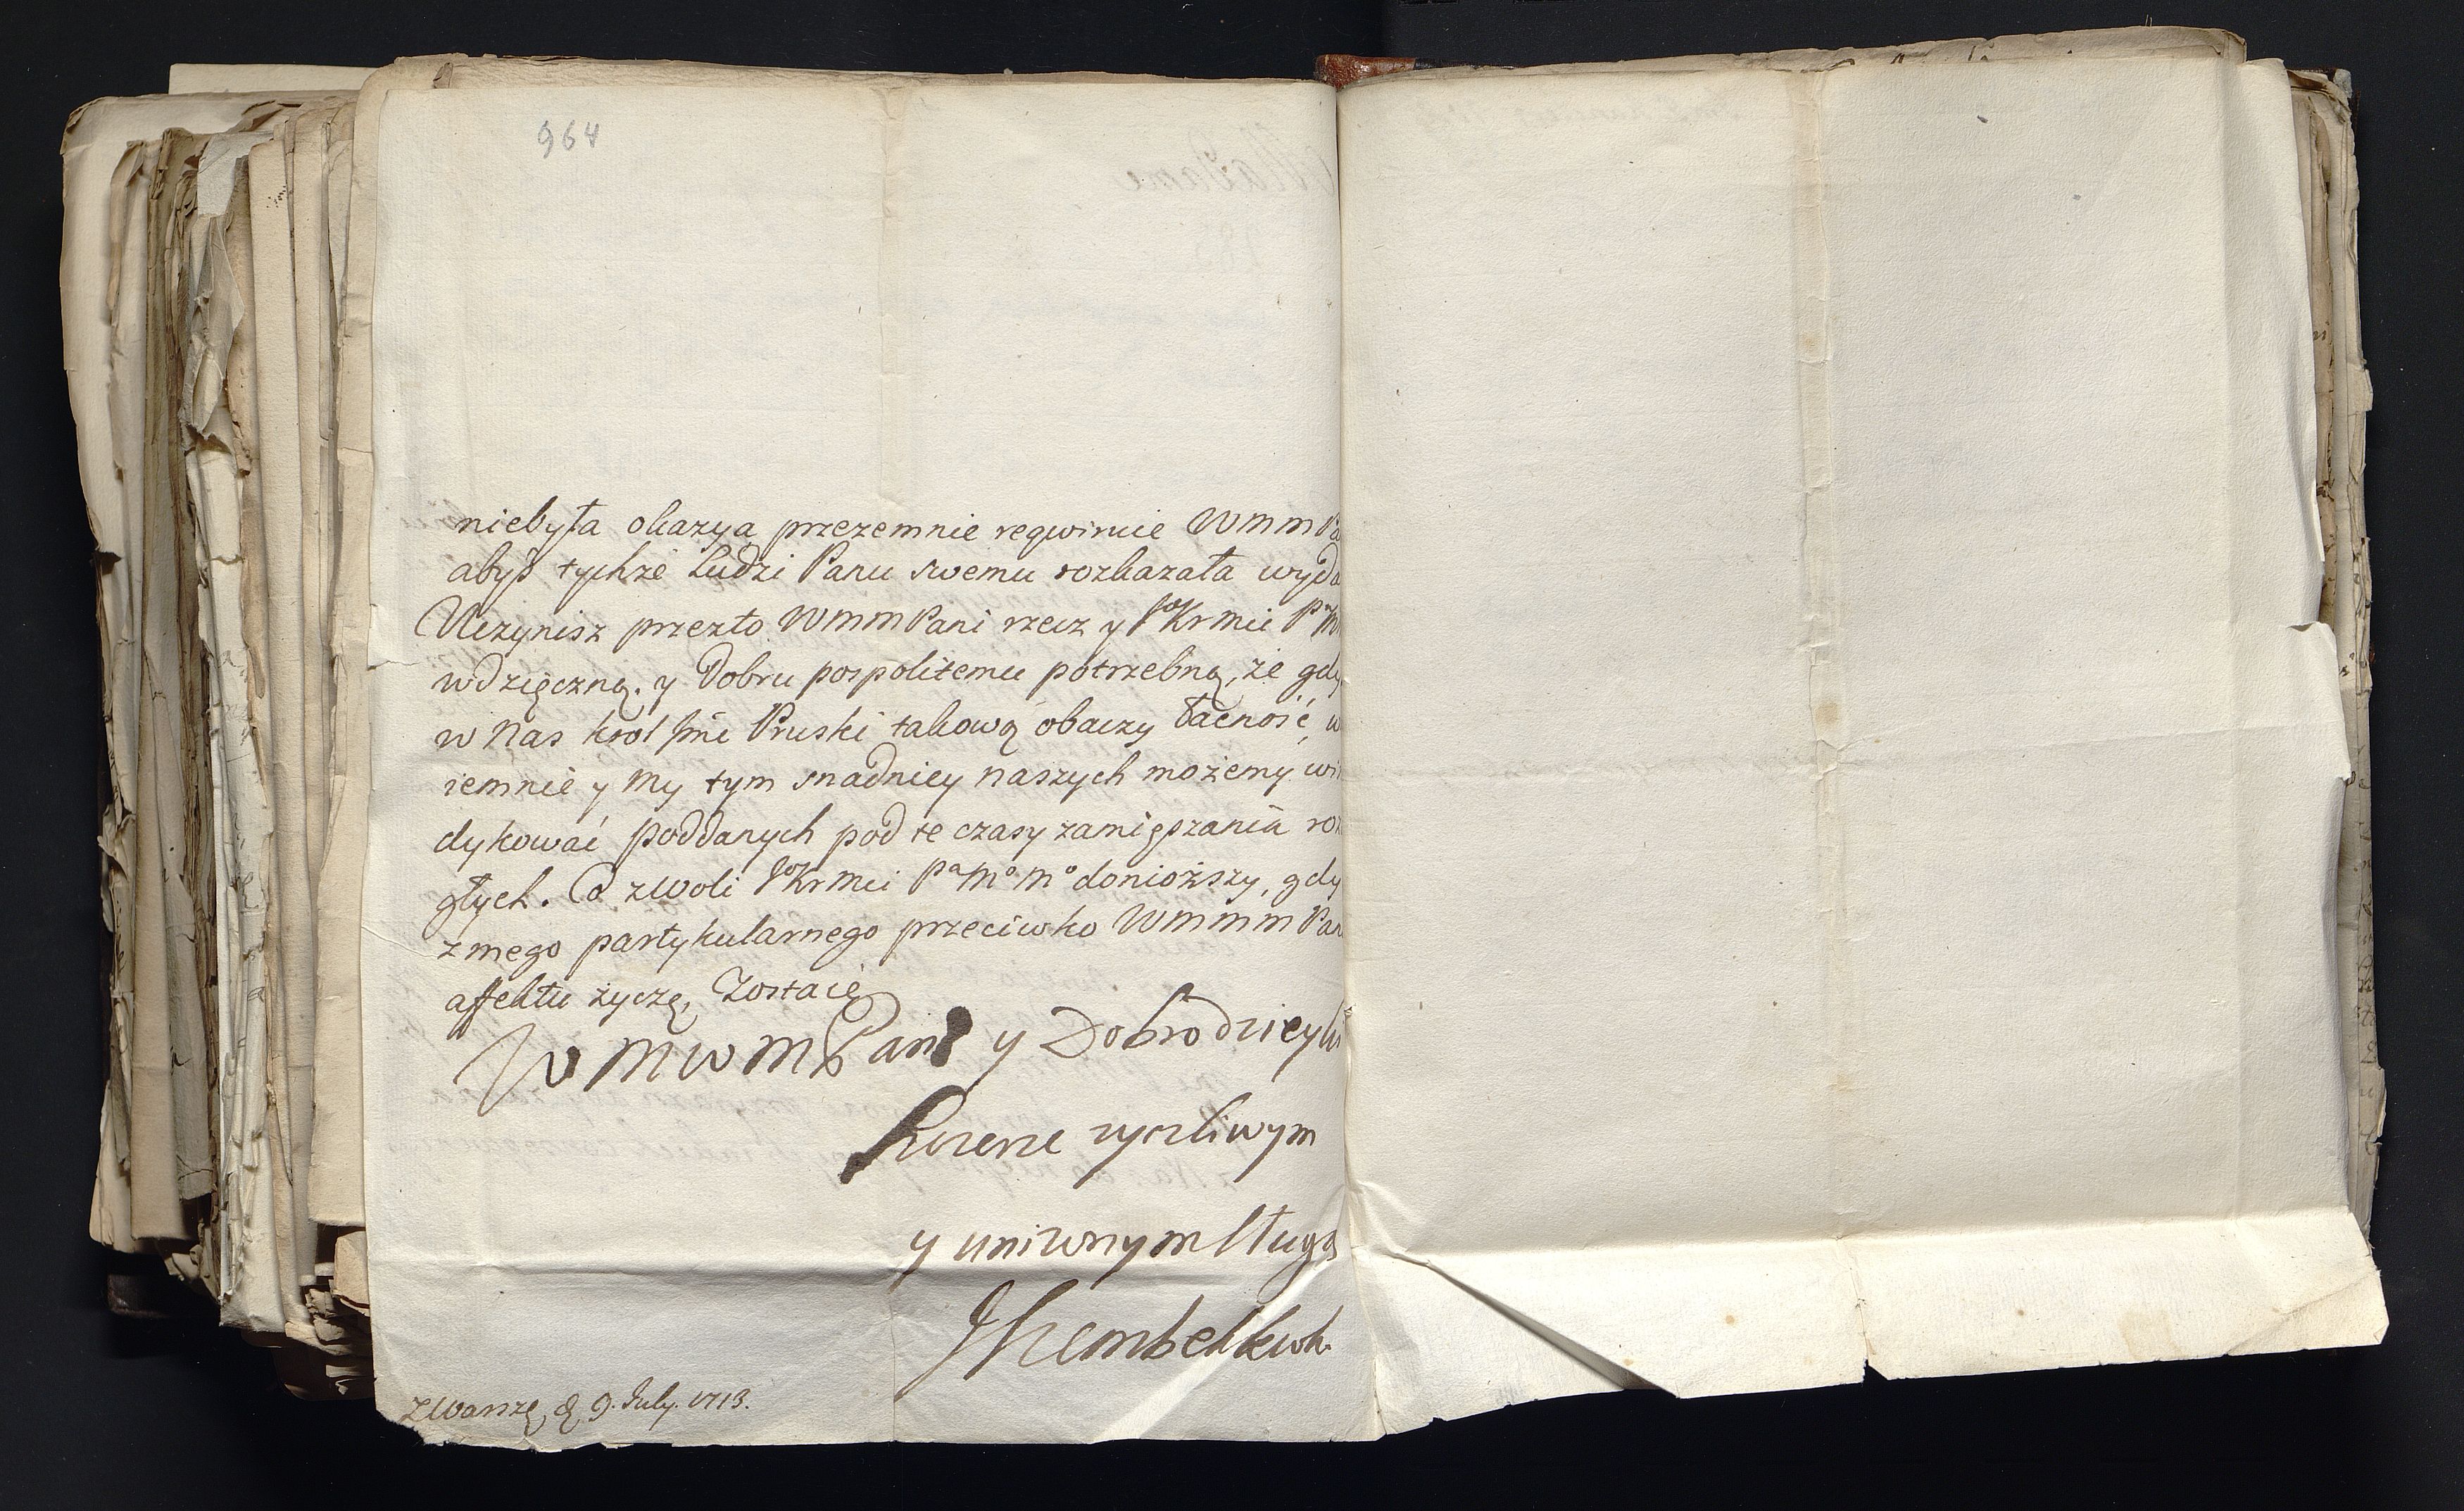 964
niebyła okazyą przezemnie reqwiruie WMM
abyś tychże Ludzi Panu swemu rozkazała
Uczynisz przezto WMMPani rzecz y JoKrMci
wdzięczną. y Dobru pospolitemu potrzebną, że gdy
w Nas krol Jmć Pruski takową obaczy łacność,
iemnie y My tym snadniey naszych możemy win
dykować poddanych pod te czasy zamięszania
głych. Co zwoli JoKrMci PaMoMo doniozszy, gdy
zmego partykularnego przeciwko WMMM
affektu życzę, Zostaię
WMWMPani y Dobrodzieyki
szczerze zyczliwym
y uniznym sługą
JSzembek kwk.
zWarszę, d, 9. July. 1713.